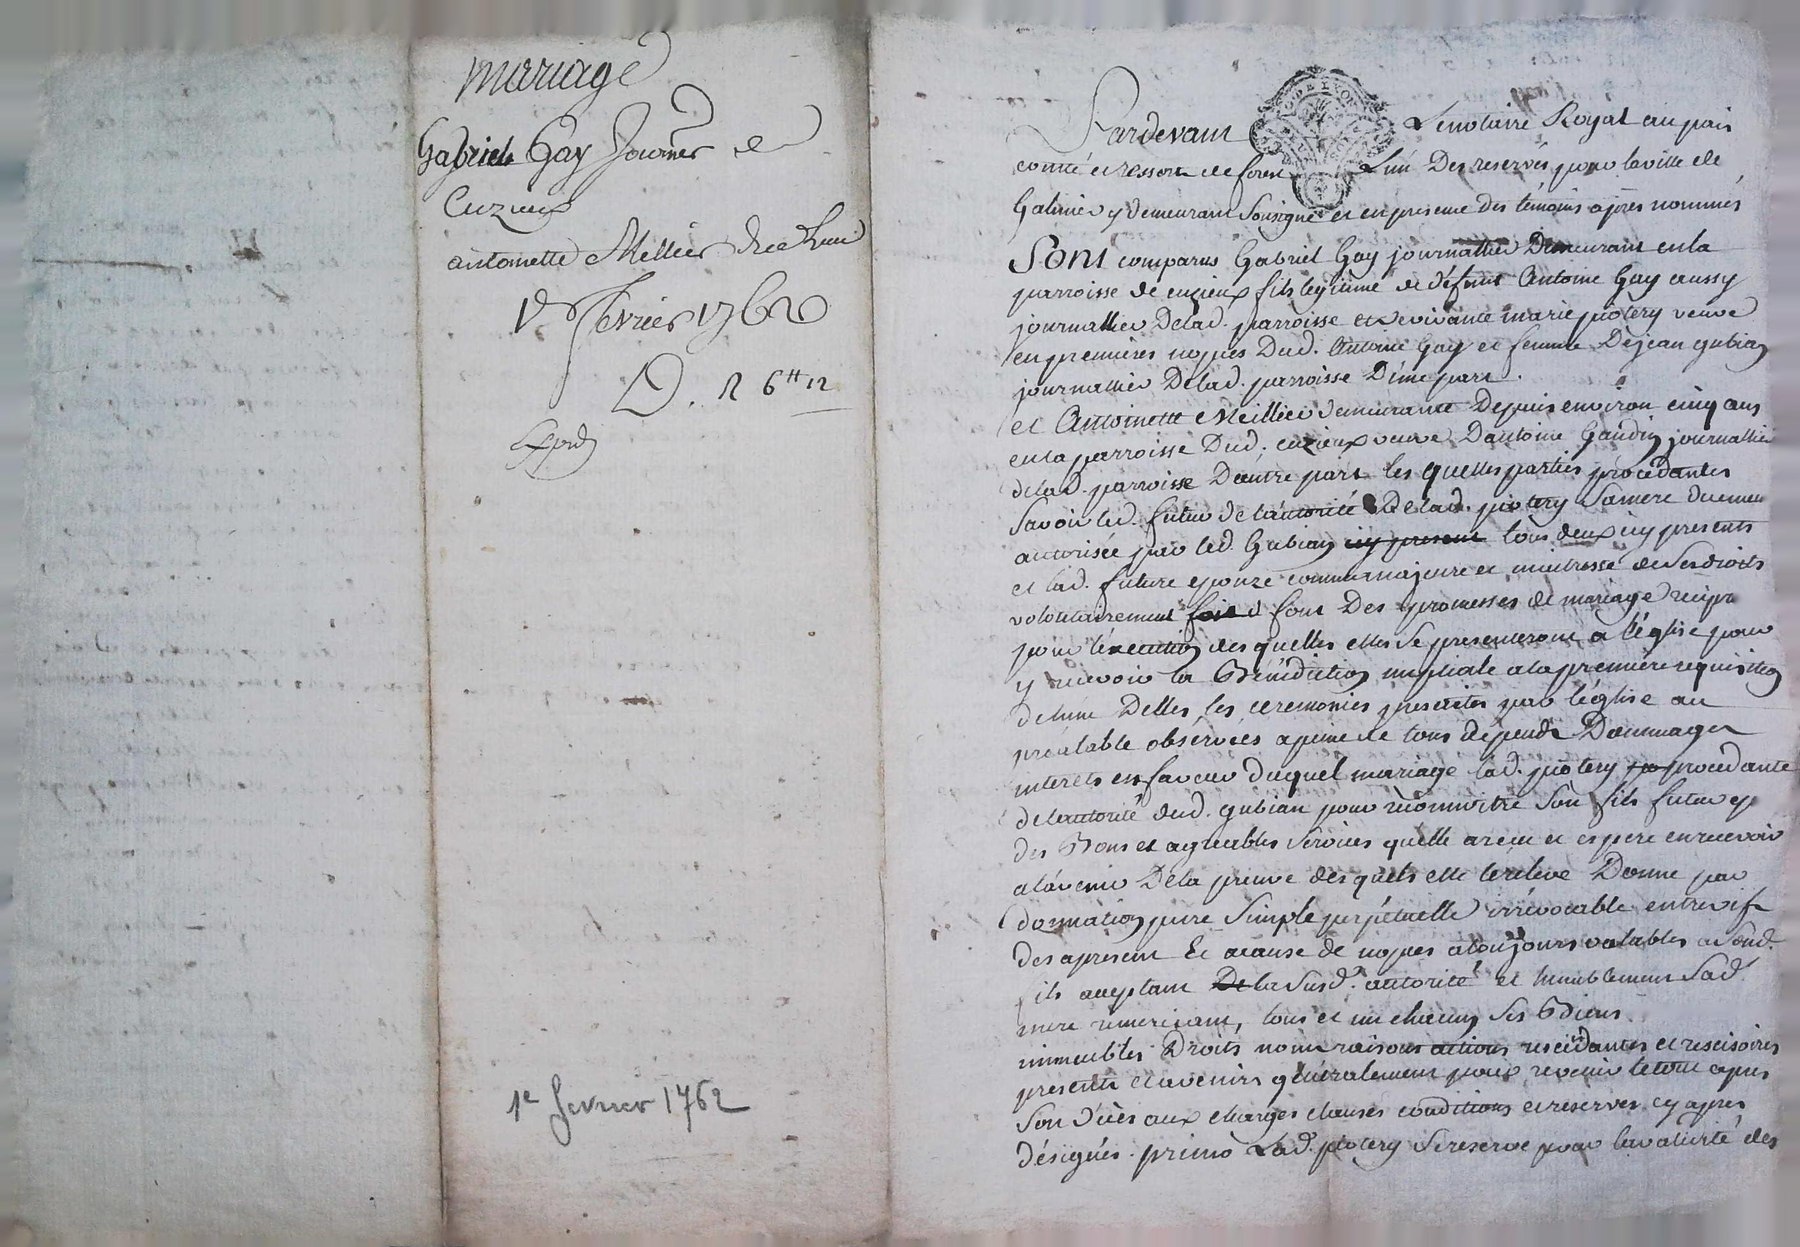 mariage
Gabriel Gay Journer de
Cuzieux
antoinette Mellier
1er fevrier 1762
D. R 6tt 12
Expd
1e fevrier 1762
Pardevant Le notaire Royal au païs
comté et ressort de forest L'un Des reservés pour la ville de
Galmier y demeurant soussigné et en presence des témoins après nommés
Sont comparus Gabriel Gay journallier Demeurant en la
parroisse de cuzieux fils legitime de défunt Antoine Gay aussy
journallier Delad. parroisse et de vivante marie piotery veuve
en premieres nopces Dud. Antoine Gay et femme De jean gubian
journallier Delad. parroisse D'une part.
et Antoinette Meillier demeurante Depuis environ cinq ans
en la parroisse Dud. cuzieux veuve D'antoine Gaudin journallier
delad. parroisse D'autre part les quelles parties procédantes
Savoir led. futur de l'autorité Delad. piotery Sa mere
autorisée par led. Gubian icy present tous deux icy presents
et lad. future epouze comme majeure et maitresse de Ses droits
volontairement font Des promesses de mariage recipro
pour l'éxecution des quelles elles Se presenteront a l'église pour
y recevoir la Bénédiction nuptiale a la premiere requisition
de lune Delles, les ceremonies prescrites par l'église au
préalable observées a peine de tous dépends Dommages
interets en faveur duquel mariage lad. piotery procédante
de l'autorité dud. gubian pour reconnoitre Son fils futur ep
des Bons et agreables Services qu'elle a reçu et espere en recevoir
a l'avenir De la preuve des quels elle le releve Donne par
donnation pure Simple perpétuelle irrévocable entrevifs
des apresent Et acause de nopces a toujours valables a Sond.
fils aceptant De la Susd. autorité et humblement Sad.
mere remerciant, tous et un chacun Ses Biens
immeubles Droits noms raisons actions rescindantes et rescisoires
presents et avenirs généralement pour revenir le tout apres
Son décès aux charges clauses conditions et reserves cy apres
désignés. primò Lad. piotery Se reserve pour la validité des